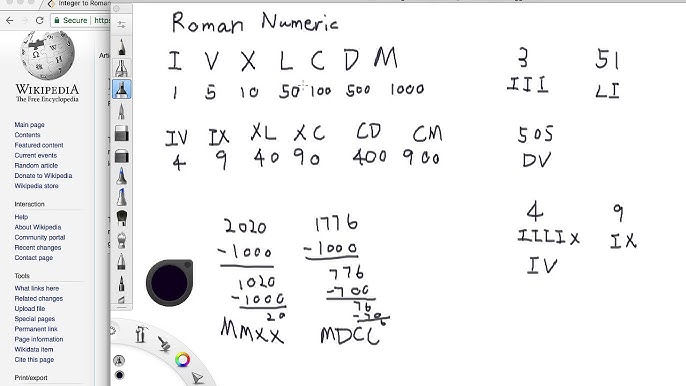 Integer to Roman
Secure
https
WIKIPEDIA
The Free Encyclopedia
Main page
Contents
Featured content
Current events
Random article
Donate to Wikipedia
Wikipedia store
Interaction
Help
About Wikipedia
Community portal
Recent changes
Contact page
Tools
What links here
Related changes
Upload file
Special pages
Permanent link
Page information
Wikidata item
Cite this page
Print/export
Roman Numeric
I V X L C D M
1 5 10 50 100 500 1000
IV IX XL XC CD CM
4 9 40 90 400 900
2020
-1000
1020
-1000
20
MMXX
1776
-1000
776
-700
76
MDCC
3
III
51
LI
505
DV
4
IIII X
IV
9
IX